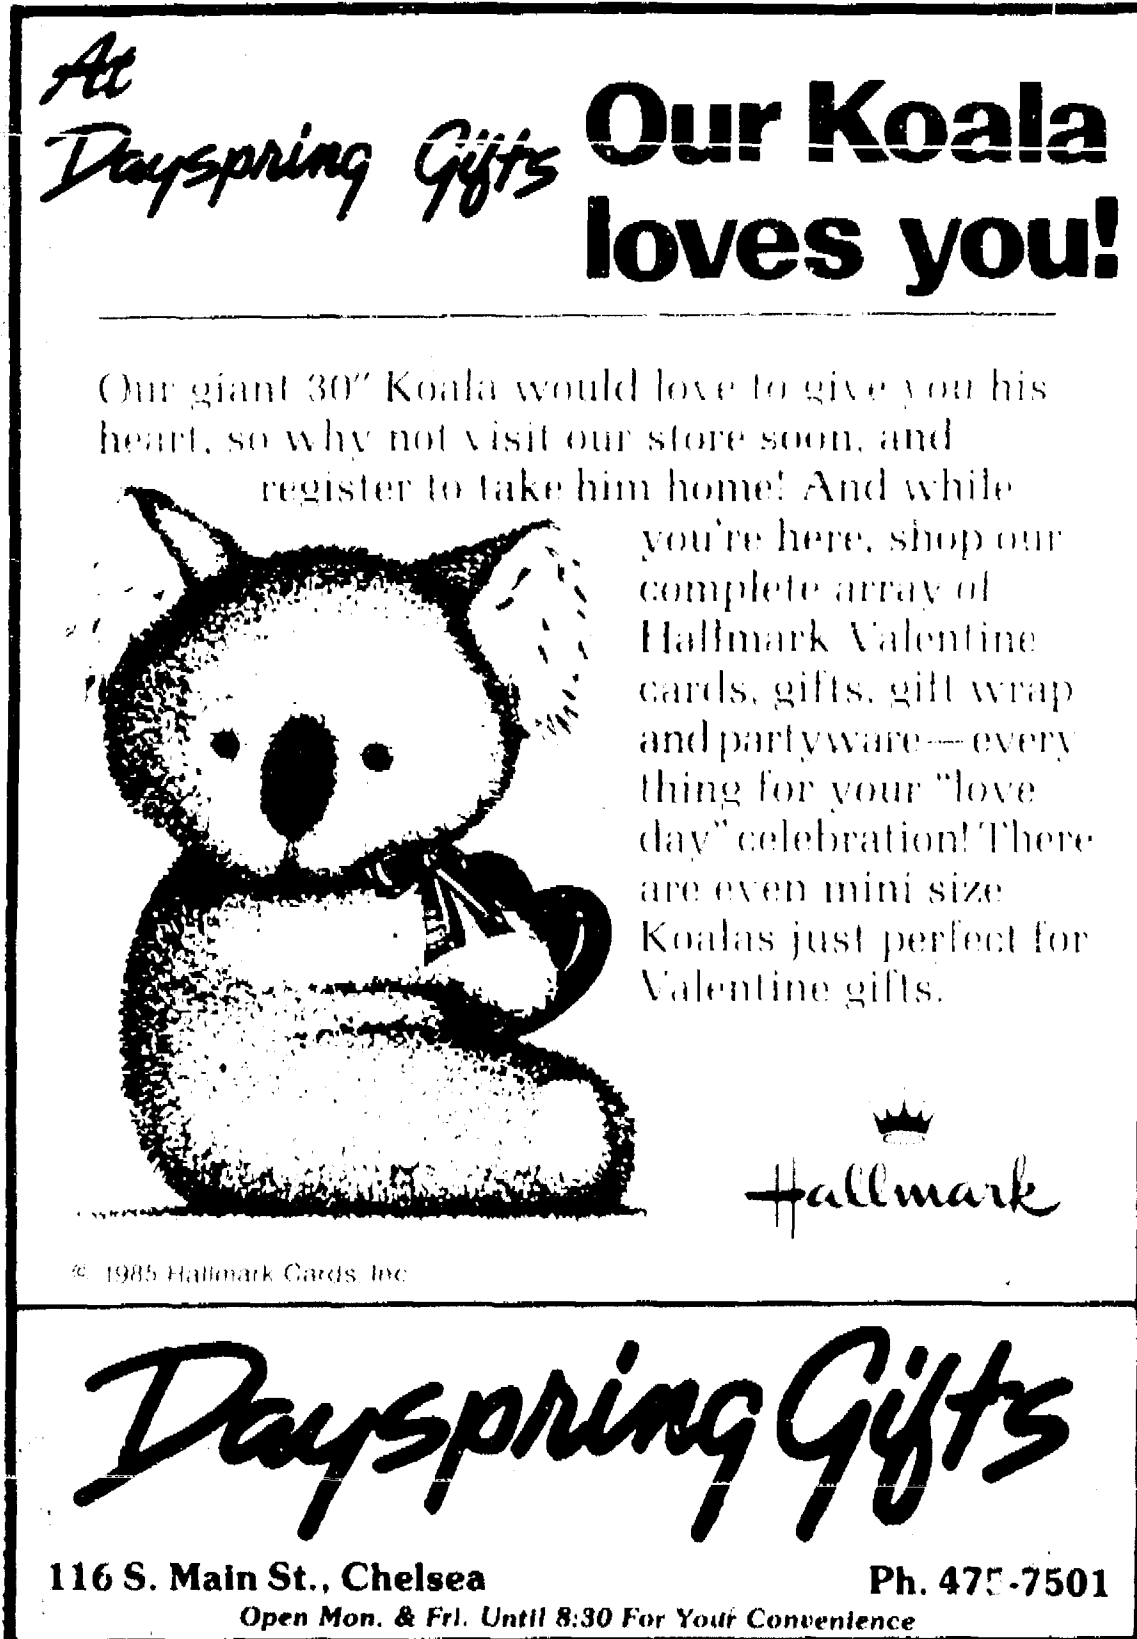 At
Dayspring Gifts
Our Koala
loves you!
Our giant 30" Koala would love to give you his
heart, so why not visit our store soon, and
register to take him home! And while
you're here, shop our
complete array of
Hallmark Valentine
cards, gifts, gift wrap
and partyware—every
thing for your "love
day" celebration! There
are even mini size
Koalas just perfect for
Valentine gifts.
Hallmark
© 1985 Hallmark Cards, Inc
Dayspring Gifts
116 S. Main St., Chelsea
Ph. 475-7501
Open Mon. & Fri. Until 8:30 For Your Convenience